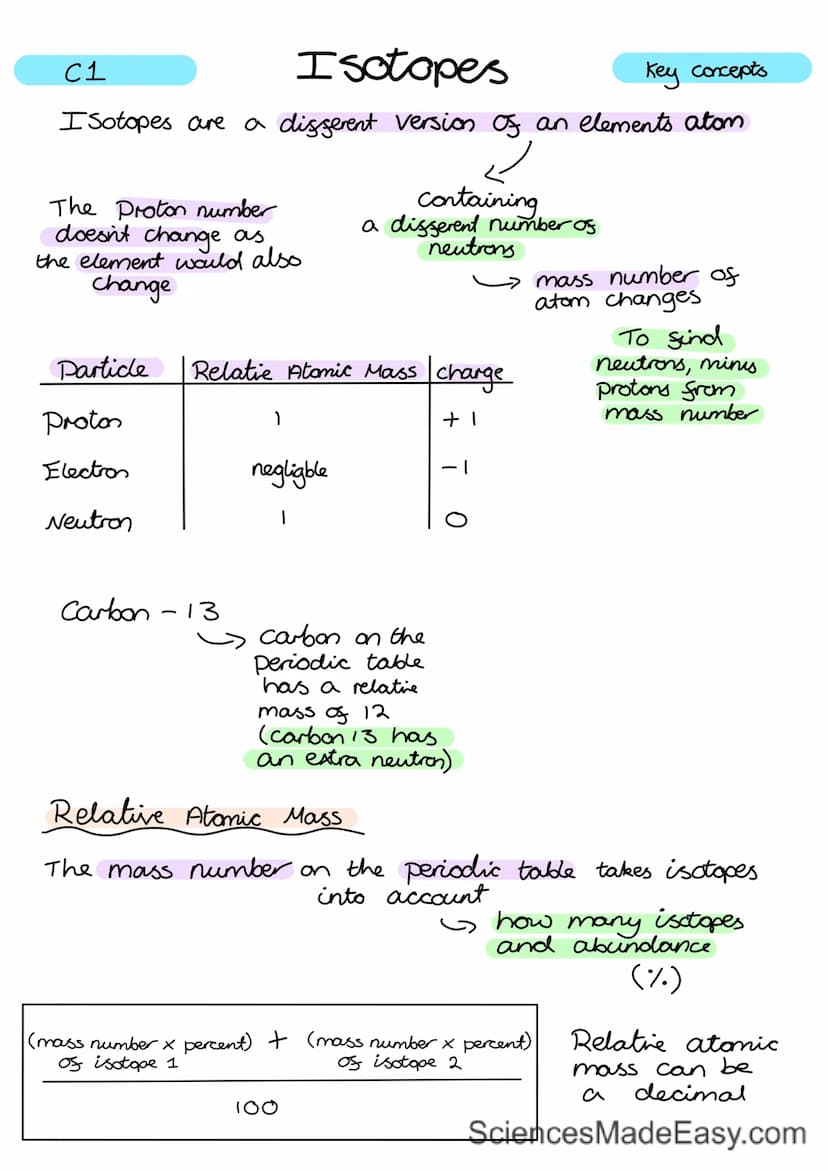 C1
Isotopes
Key concepts
Isotopes are a different version of an elements atom
containing
a different number of
neutrons
The Proton number
doesn't change as
the element would also
change
mass number of
atom changes
To find
neutrons, minus
protons from
mass number
Particle Relatie Atomic Mass charge
Proton 1 +1
Electron negligble -1
Neutron 1 0
Carbon - 13
carbon on the
periodic table
has a relative
mass of 12
(carbon 13 has
an extra neutron)
Relative Atomic Mass
The mass number on the periodic table takes isotopes
into account
how many isotopes
and abundance
(%)
(mass number x percent) + (mass number x percent)
of isotope 1 of isotope 2
100
Relatie atomic
mass can be
a decimal
SciencesMadeEasy.com